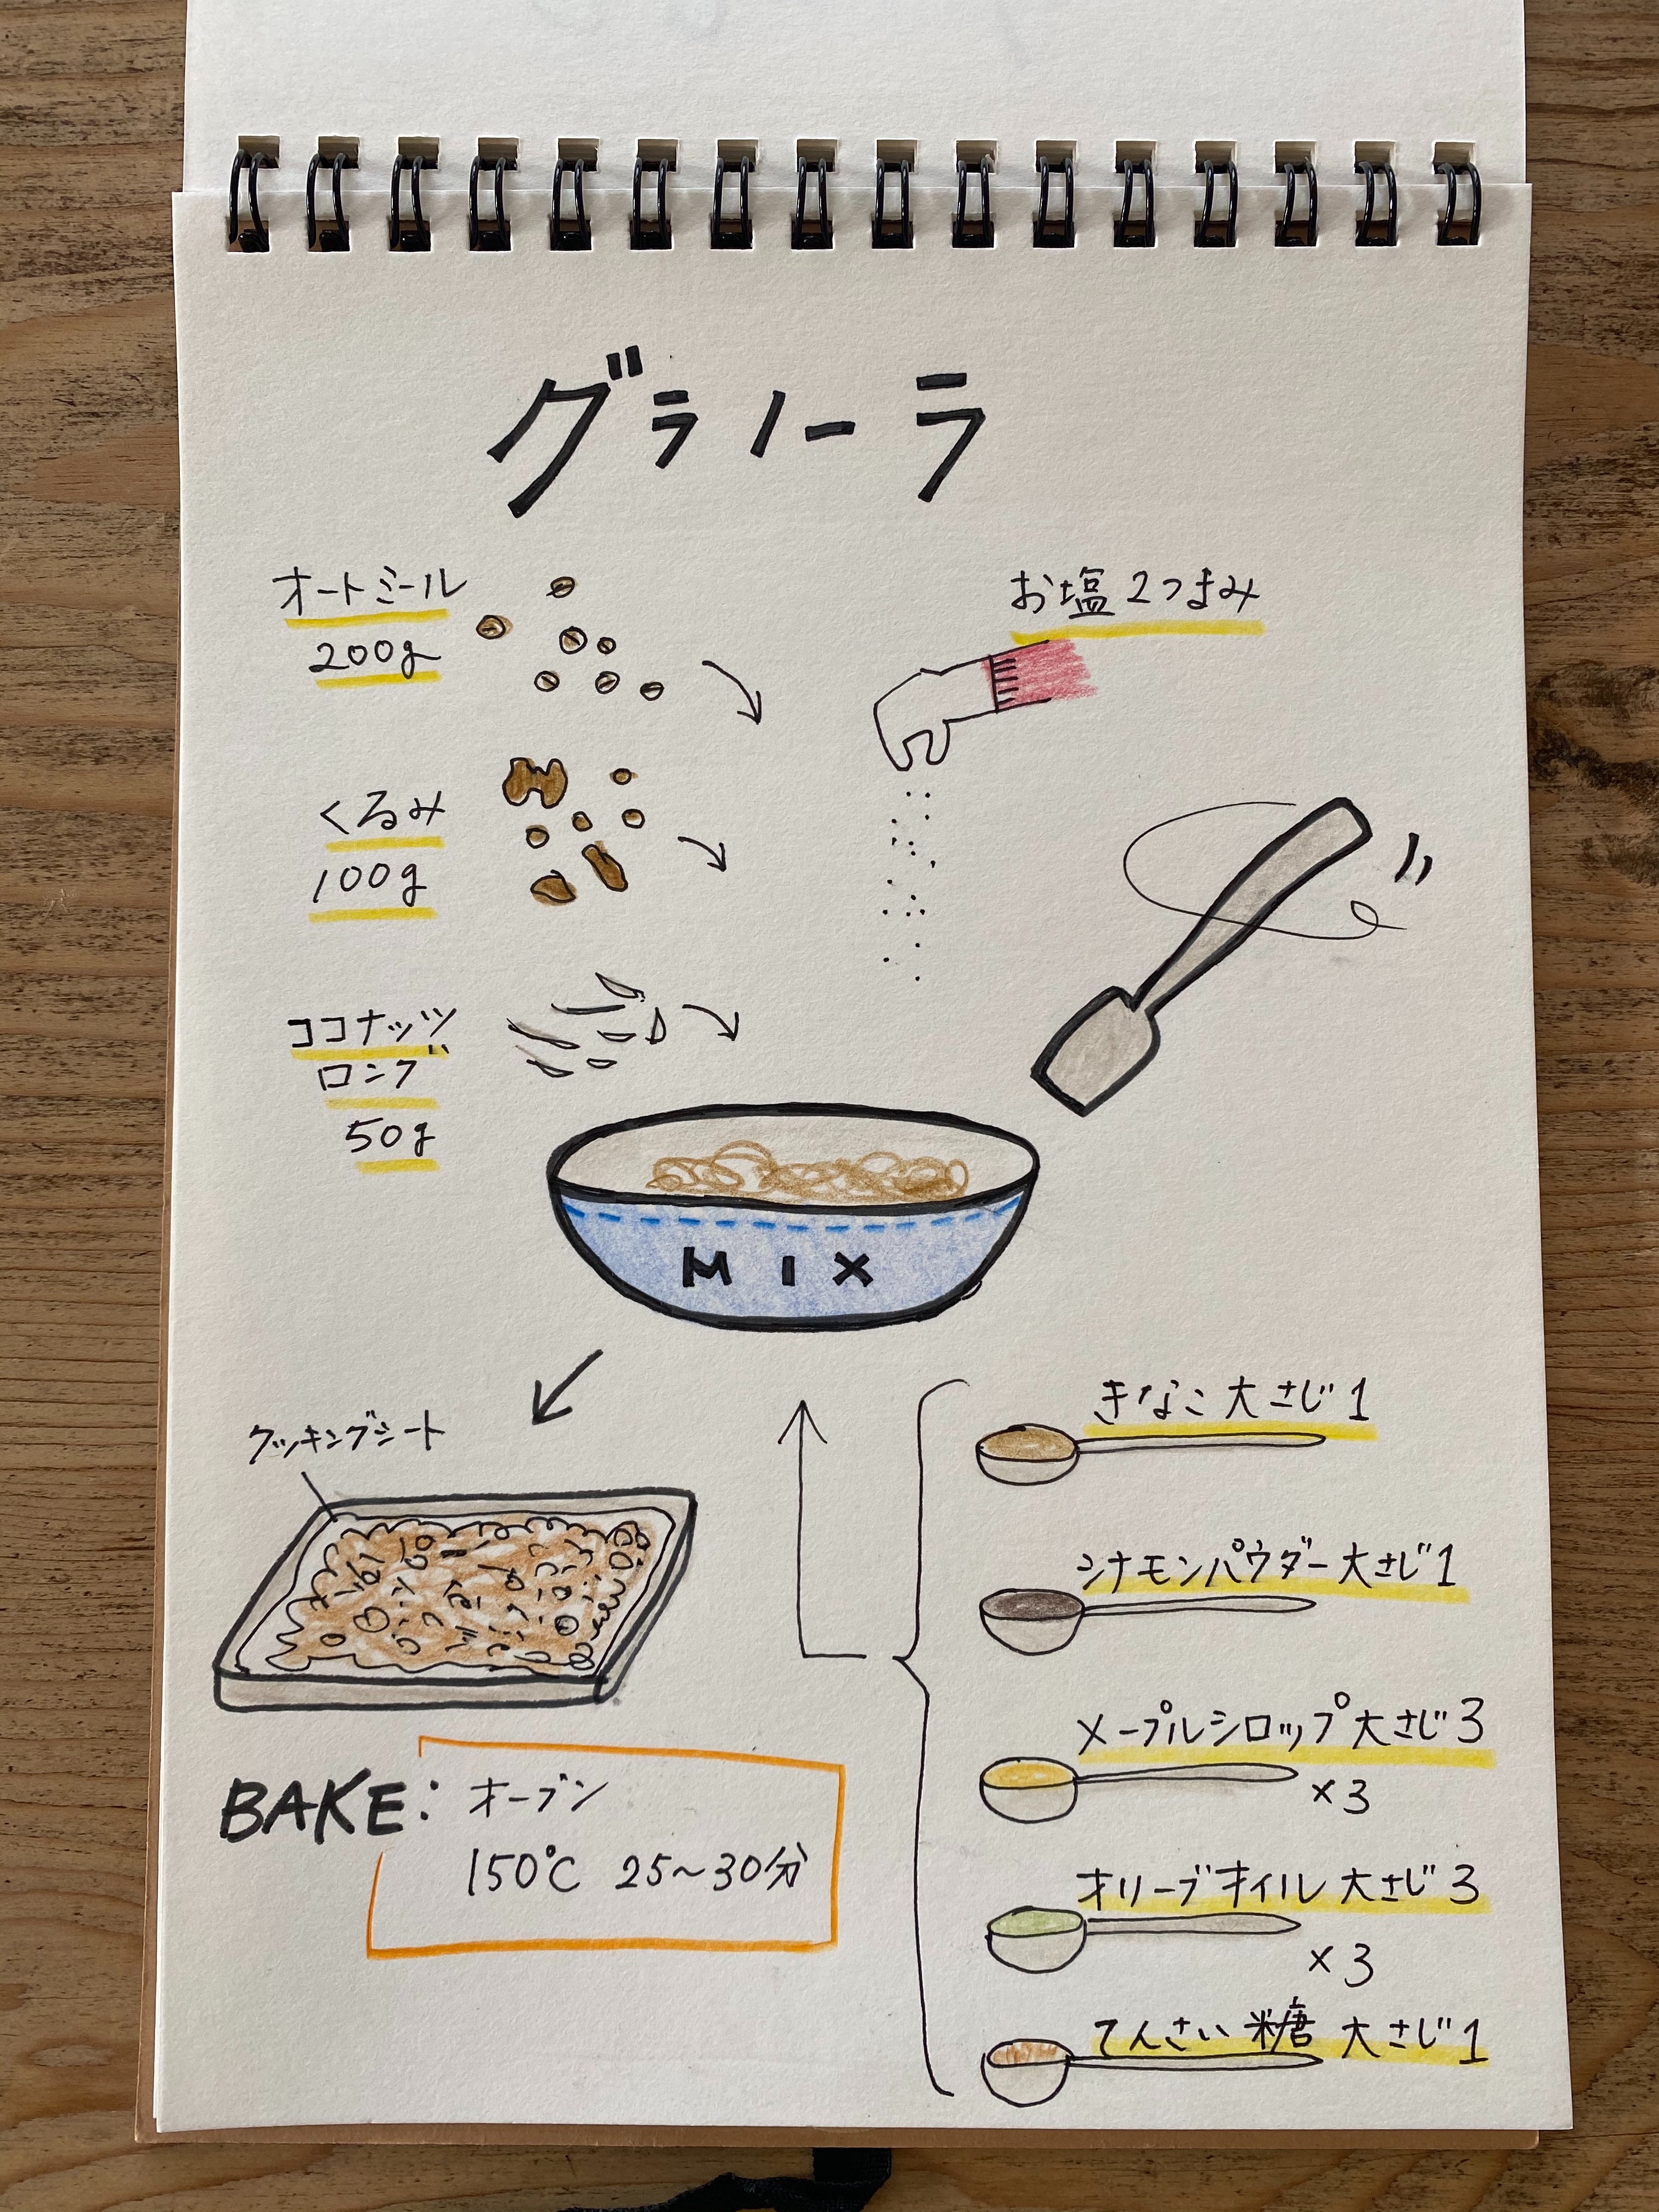 グラノーラ
オートミール
200g
お塩 2つまみ
くるみ
100g
ココナッツ
ロング
50g
MIX
クッキングシート
BAKE: オーブン
150℃ 25~30分
きなこ 大さじ1
シナモンパウダー 大さじ1
メープルシロップ 大さじ3
×3
オリーブオイル 大さじ3
×3
てんさい糖 大さじ1